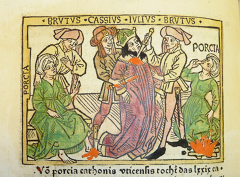 BRVTVS CASSIVS IVLIVS BRVTVS
PORCIA
PORCIA
Võ porcia cathonis vticensis tochť das lxxix ca